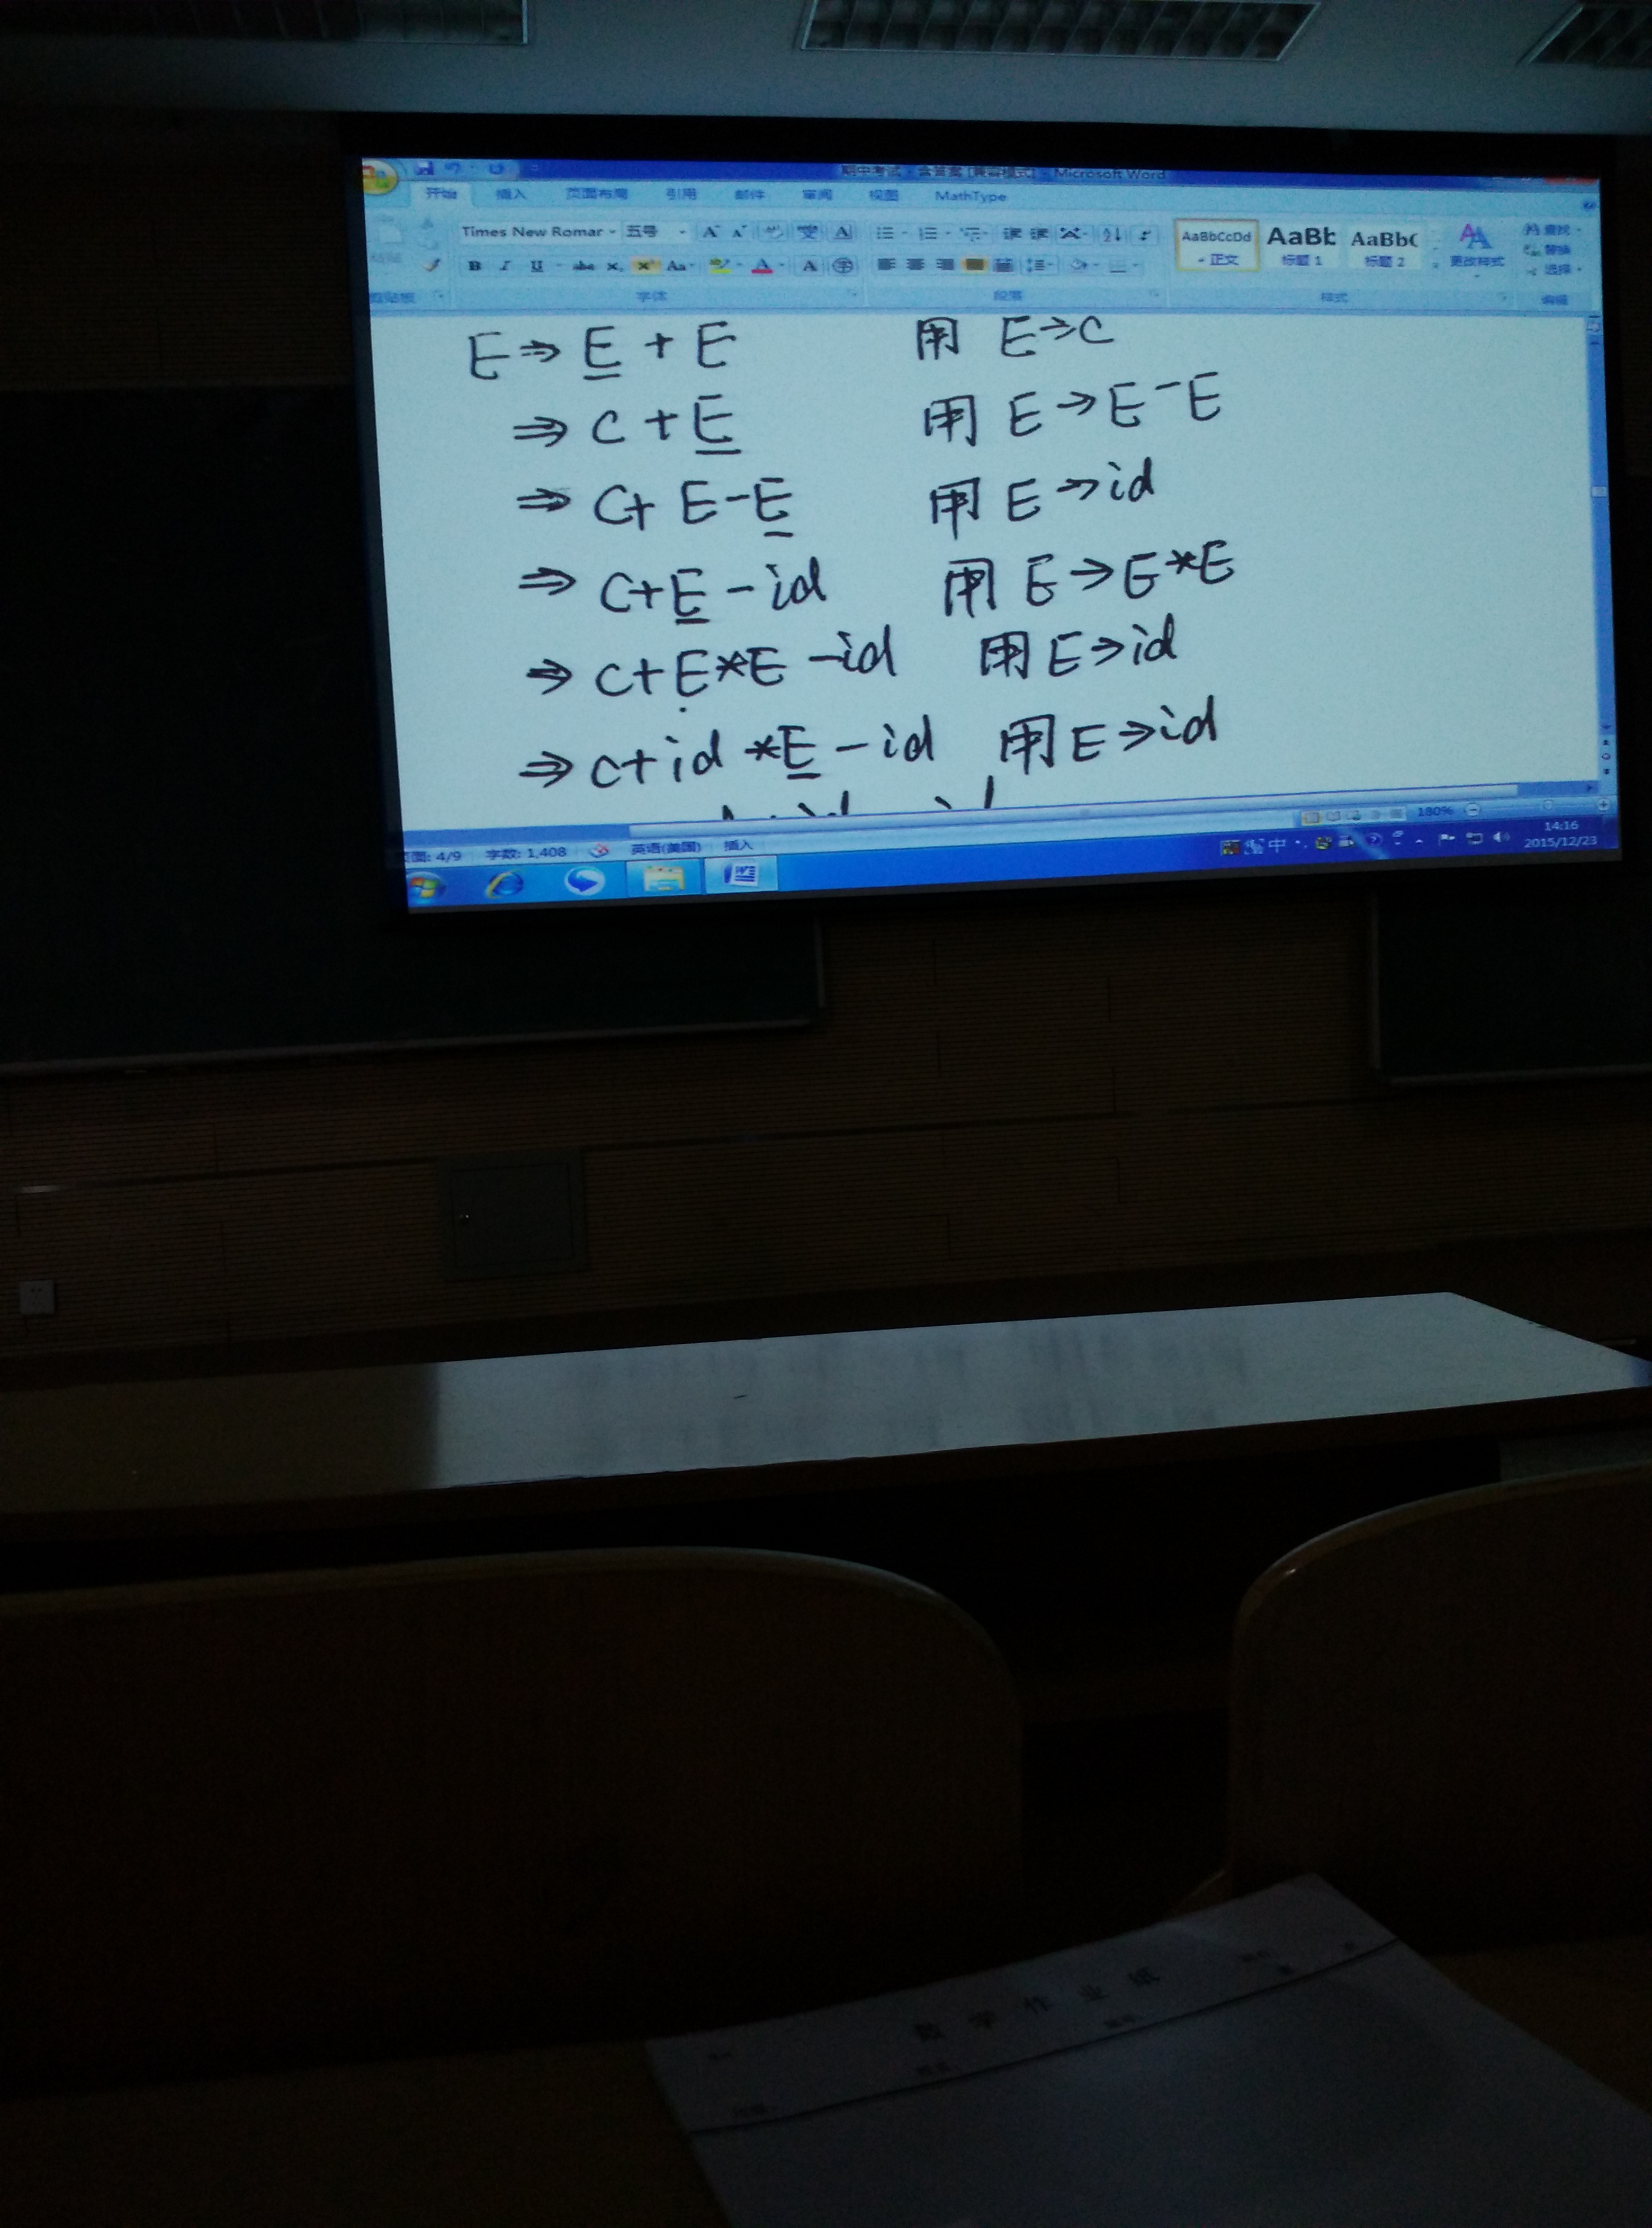 期中考试 - 含答案 [兼容模式] - Microsoft Word
开始 插入 页面布局 引用 邮件 审阅 视图 MathType
Times New Romar 五号 A A A
AaBbCcDd AaBb AaBbC
正文 标题 1 标题 2 更改样式
查找
替换
选择
B I U abc x Aa A A
剪贴板 字体 段落 样式 编辑
E ⇒ E + E 用 E→C
⇒ C + E 用 E→E-E
⇒ C+ E-E 用 E→id
⇒ C+E-id 用 E→E*E
⇒ C+E*E-id 用 E→id
⇒ C+id*E-id 用 E→id
180%
页面: 4/9 字数: 1,408 英语(美国) 插入
中
14:16
2015/12/23
数学作业纸